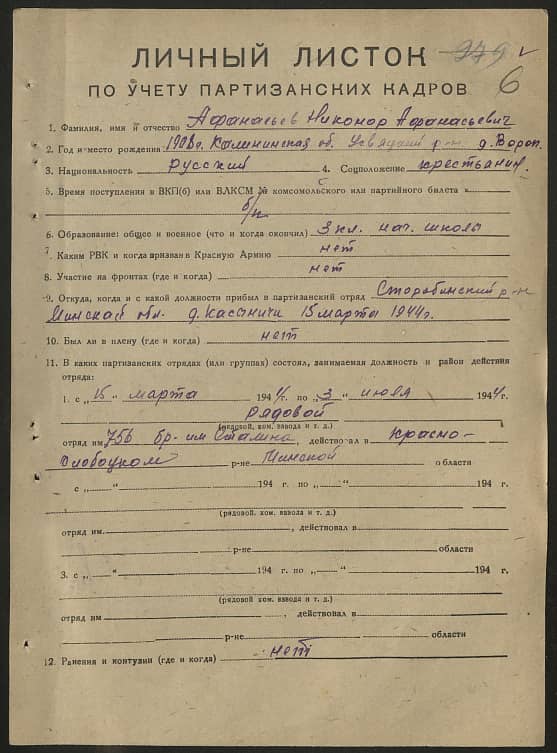 ЛИЧНЫЙ ЛИСТОК 279 v
ПО УЧЕТУ ПАРТИЗАНСКИХ КАДРОВ 6
1. Фамилия, имя и отчество Афанасьев Никонор Афанасьевич
2. Год и место рождения 1908г. Калининская об. Усвядский р-н д. Вороп.
3. Национальность русский 4. Соцположение крестьянин.
5. Время поступления в ВКП(б) или ВЛКСМ № комсомольского или партийного билета
б/п
6. Образование: общее и военное (что и когда окончил) 3 кл. нач. школы
7. Каким РВК и когда призван в Красную Армию нет
8. Участие на фронтах (где и когда) нет
9. Откуда, когда и с какой должности прибыл в партизанский отряд Старобинский р-н
Минская обл. д. 15 марта 1944г.
10. Был ли в плену (где и когда) нет
11. В каких партизанских отрядах (или группах) состоял, занимаемая должность и район действия
отряда:
1. с „15" марта 1944 г. по „3" июля 1944 г.
рядовой
(рядовой, ком. взвода и т. д.)
отряд им 756 бр-им Сталина, действовал в Красно-
слободском р-не Минской области
с „ " 194 г. по „ " 194 г.
(рядовой, ком. взвода и т. д.)
отряд им. , действовал в
р-не области
3. с „ " 194 г. по „ " 194 г.
(рядовой, ком. взвода и т. д.)
отряд им , действовал в
р-не области
12. Ранения и контузии (где и когда) нет